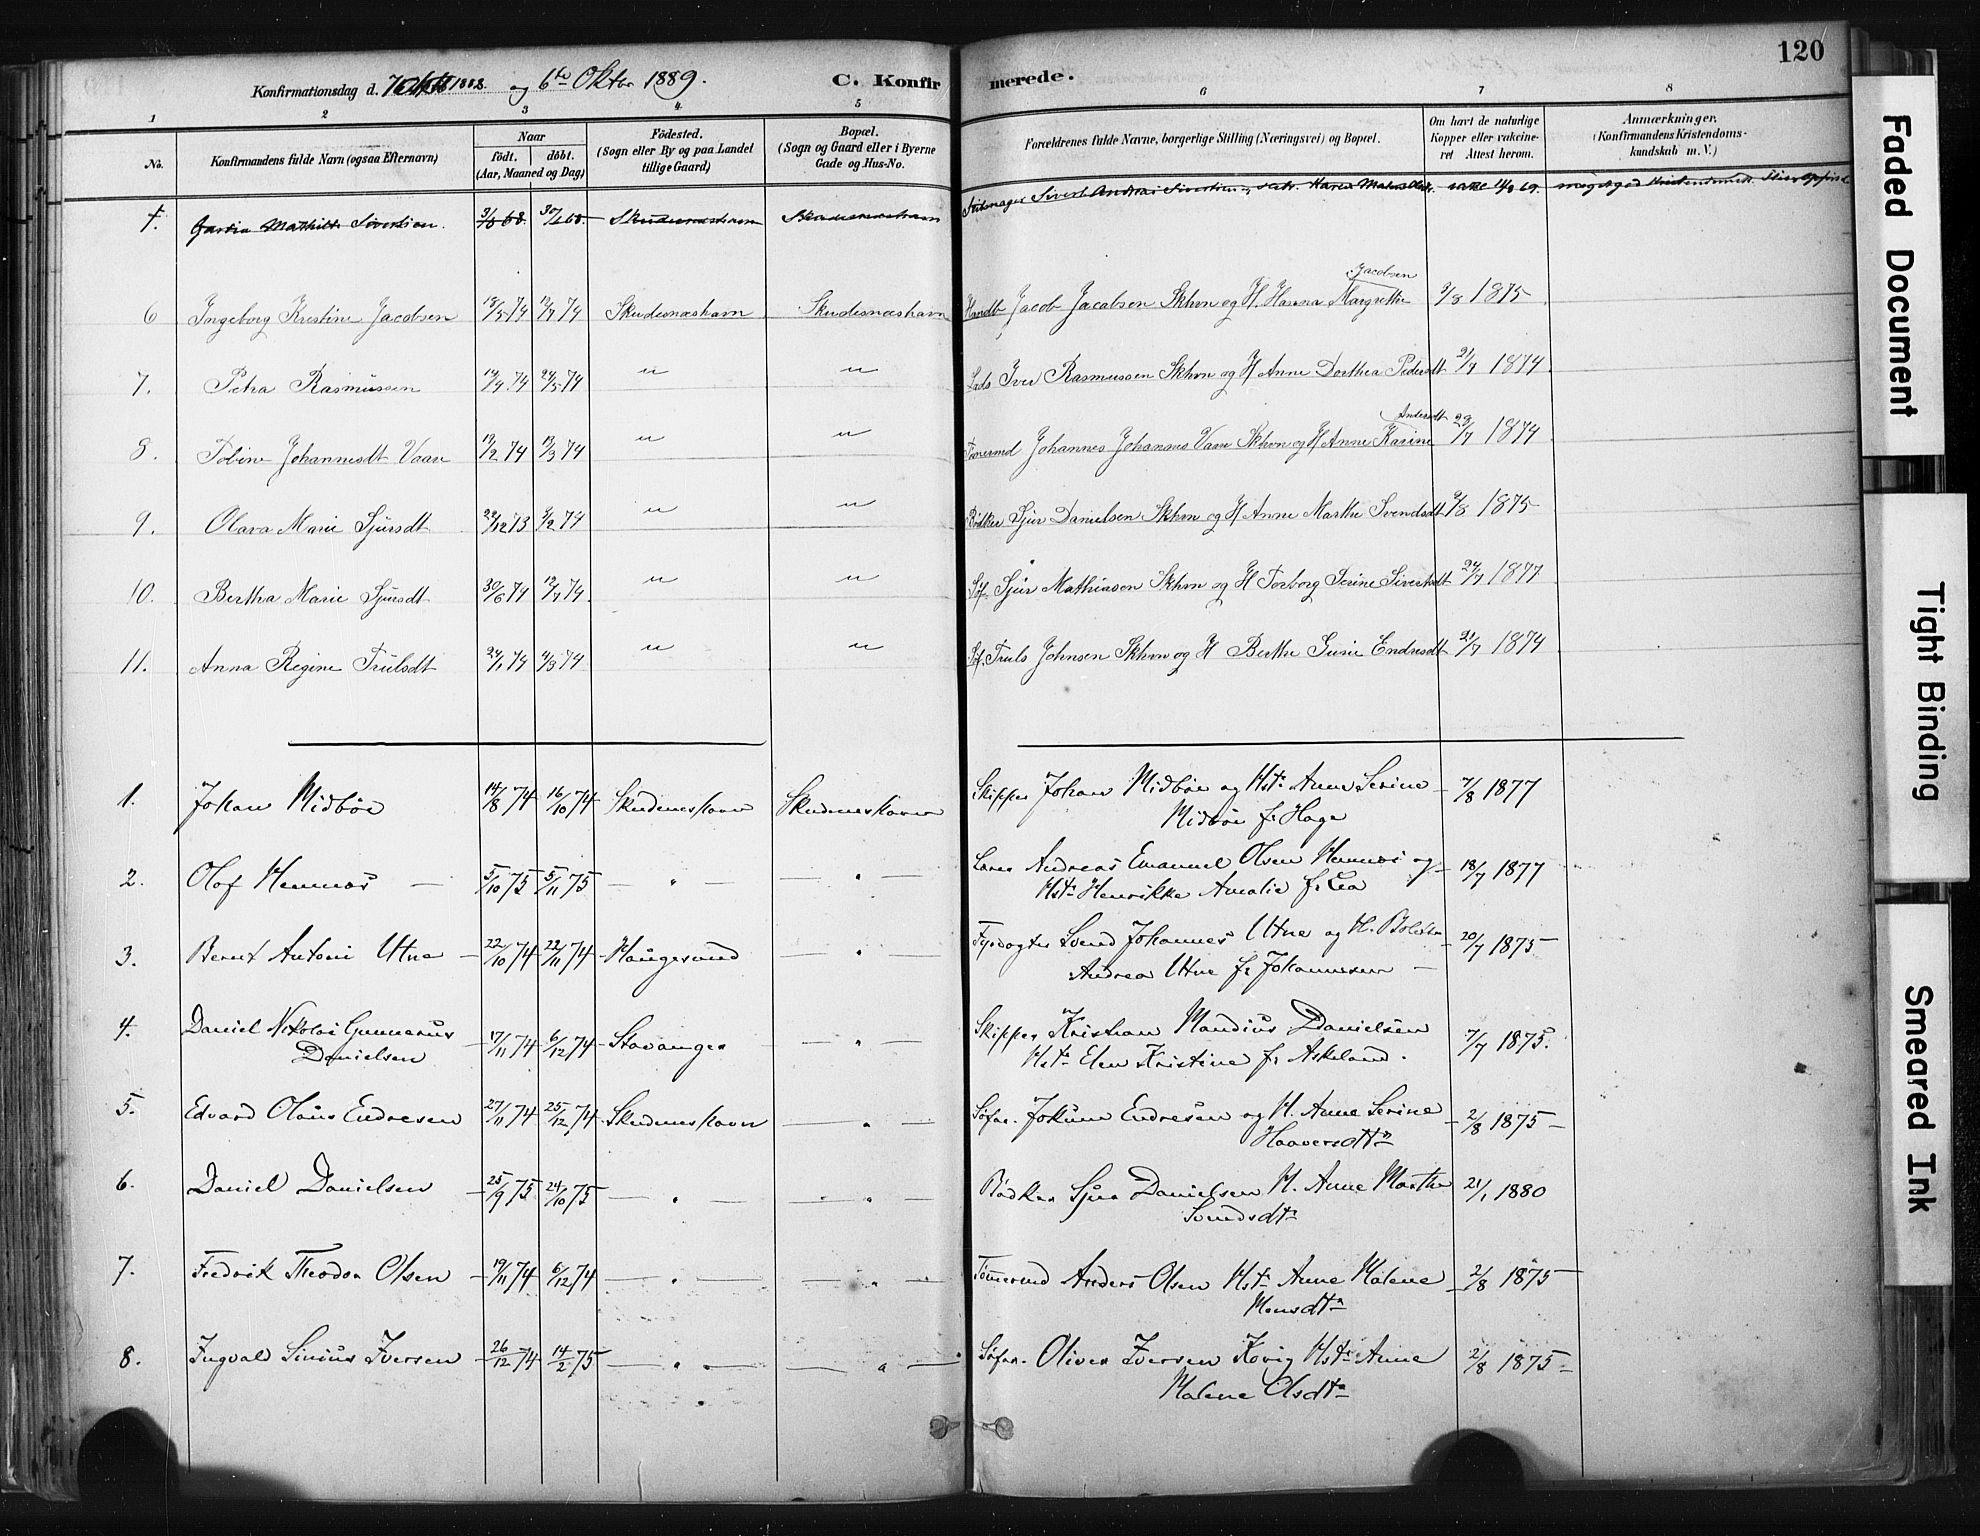 120
Konfirmationsdag d. 7 Okt 1888 og 6te Oktbr 1889.
C. Konfirmerede.
1 2 3 4 5 6 7 8
No.
Konfirmandens fulde Navn (ogsaa Efternavn)
Naar
født. døbt.
(Aar, Maaned og Dag)
Fødested.
(Sogn eller By og paa Landet
tillige Gaard)
Bopæl.
(Sogn og Gaard eller i Byerne
Gade og Hus-No.
Forældrenes fulde Navne, borgerlige Stilling (Næringsvei) og Bopæl.
Om havt de naturlige
Kopper eller vakcine-
ret Attest herom.
Anmerkninger.
(Konfirmandens Kristendoms-
kundskab m. V.)
Mathilde Sivertsen. Skudesnæshavn Skudesnæshavn Sivert Andreas Sivertsen
6 Ingeborg Kristine Jacobsen 18/5 74 12/7 74 Skudesnæshavn Skudesnæshavn Handlb Jacob Jacobsen Skhvn og H. Hanna Margrethe Jacobsen 2/8 1875
7. Petra Rasmussen 19/4 74 24/5 74 " " Lods Iver Rasmussen Skhvn og H Anne Dorthea Pedersdt 21/7 1874
8. Tobine Johannesdt Vaare 12/2 74 12/3 74 " " Tømermd Johannes Johannes Vaare Skhvn og H Anne Karine Andersdt 29/7 1874
9. Olava Marie Sjursdt 22/12 73 8/2 74 " " Bødker Sjur Danielsen Skhvn og H Anne Marthe Svendsdt 2/8 1875
10. Bertha Marie Sjursdt 30/6 74 12/7 74 " " Søf. Sjur Mathiasen Skhvn og H Torborg Serine Sivertsdt 24/7 1877
11. Anna Regine Trulsdt 24/1 74 4/3 74 " " Søf. Truls Johnsen Skhvn og H Berthe Susie Endresdt 21/7 1874
1. Johan Midbøe 14/8 74 16/10 74 Skudeneshavn Skudeneshavn Skipper Johan Midbøe og Hst. Anne Serine 7/8 1877
Midbøe f. Hage
2. Olof Hemnæs — 5/10 75 5/11 75 — " — — " — Lærer Andreas Emanuel Olsen Hemnæs og 18/7 1877
Hst. Henrikke Amalie f. Lea
3. Bernt Antoni Utne 22/10 74 22/11 74 Haugesund — " — Fyrvogter Svend Johannes Utne og H. 20/7 1875
Andrea Utne f. Johannesen —
4. Daniel Nikolai Gunnerius 17/11 74 6/12 74 Stavanger — " — Skipper Kristian Mandius Danielsen 7/7 1875.
Danielsen Hst. Elen Kristine f. Askeland.
5. Edvard Olaus Endresen 27/11 74 25/12 74 Skudeneshavn — " — Søfar. Jokum Endresen og H. Anne Serine 2/8 1875
Haaversdtr
6. Daniel Danielsen 25/9 75 24/10 75 — " — — " — Bødker Sjur Danielsen H. Anne Marthe 21/1 1880
Svendsdtr
7. Fredrik Theodor Olsen 19/11 74 6/12 74 — " — — " — Tømermd Anders Olsen Hst. Anne Malene 2/8 1875
Monsdtr
8. Ingvald Sinius Iversen 26/12 74 14/2 75 — " — — " — Søfar. Oliver Iversen Kovig Hst. Anne 2/8 1875
Malene Olsdtr
Faded Document
Tight Binding
Smeared Ink